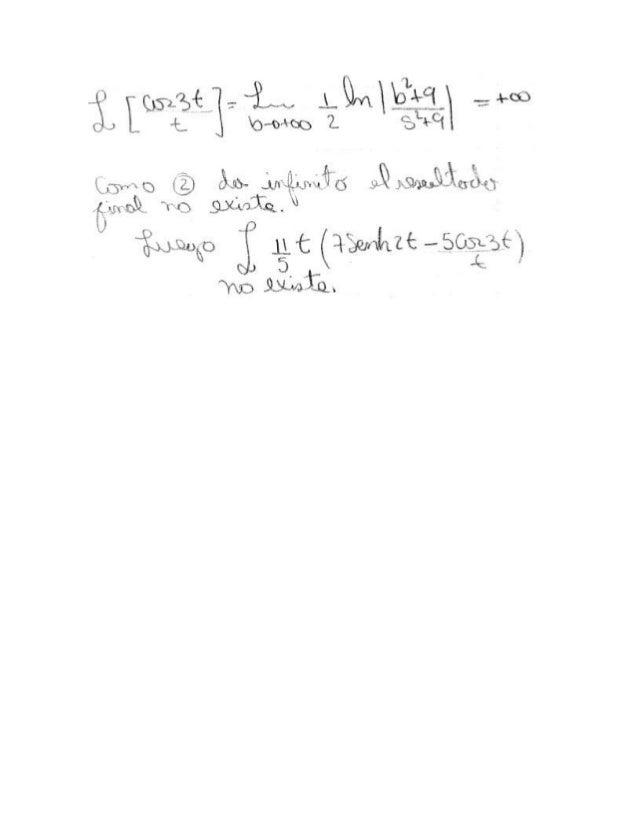 ℒ [cos3t/t] = Lim b→+∞ 1/2 ln |b²+9/s²+9| = +∞
Como ② da infinito el resultado
final no existe.
Luego ℒ 11/5 t (7Senh2t - 5Cos3t/t)
no existe.